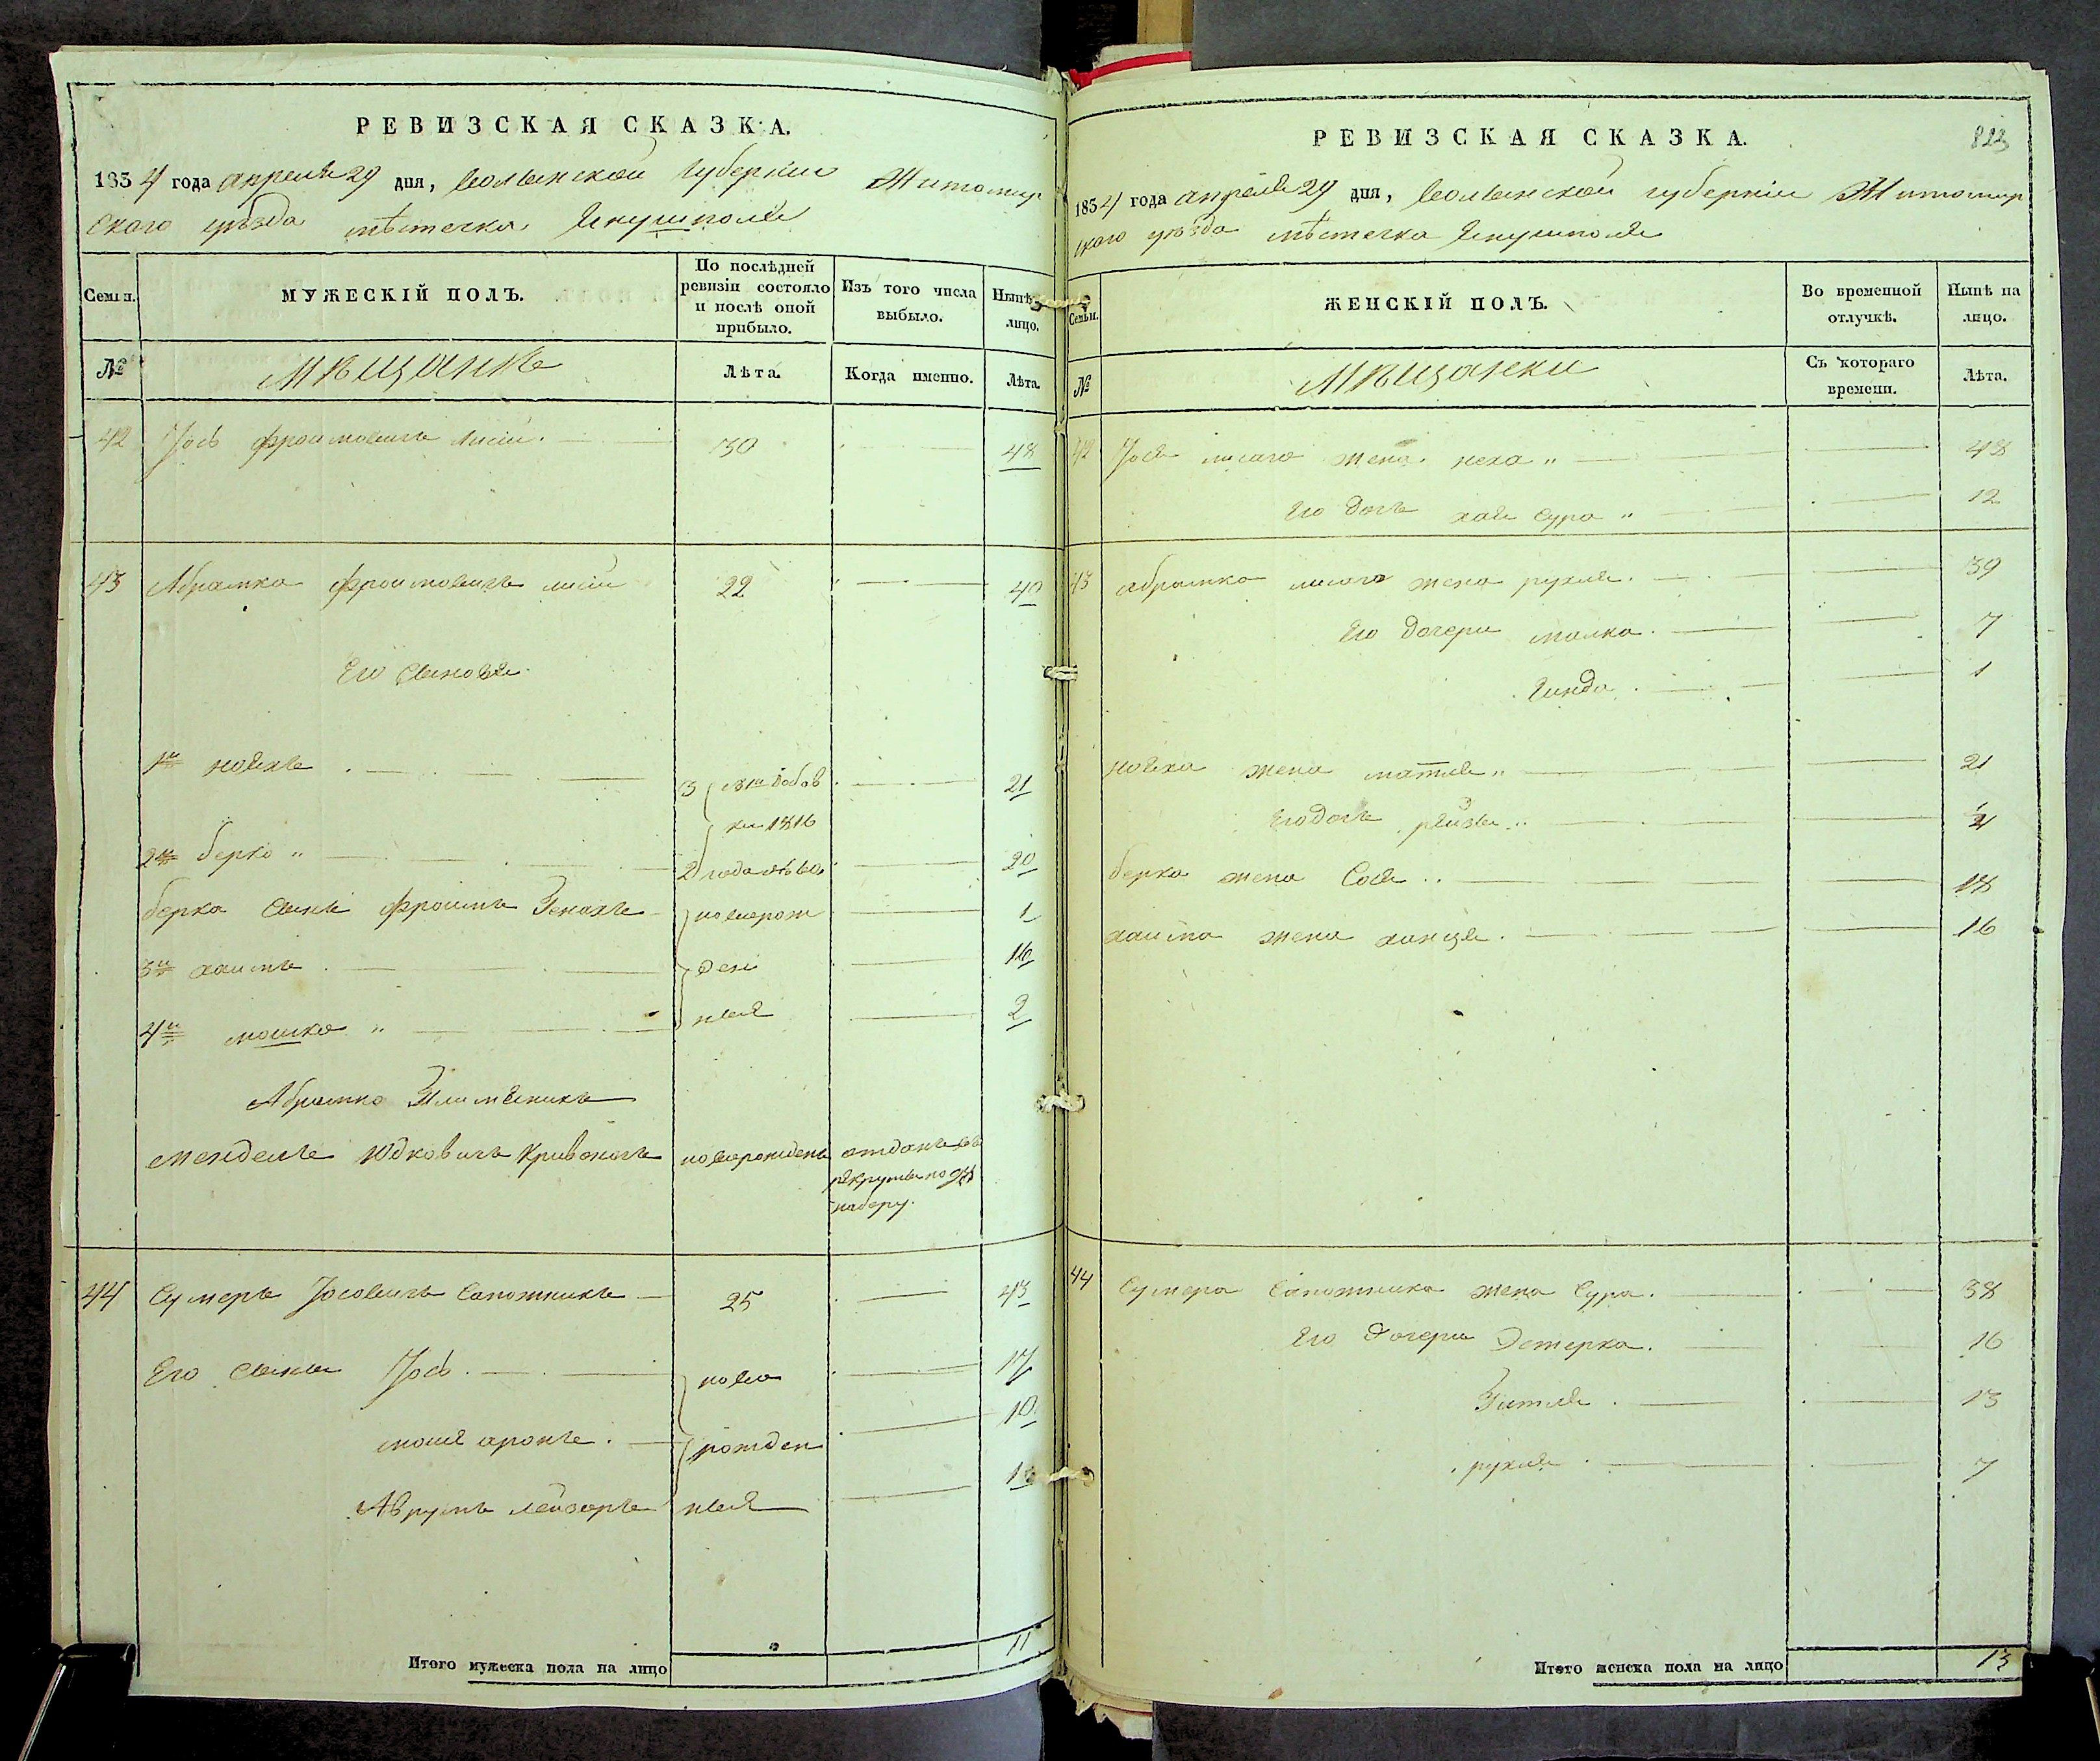 РЕВИЗСКАЯ СКАЗКА.
1834 года апреля 29 дня, Волынской Губерніи Житомир
ского уѣзда мѣстечка Янушполя
Семьи.
МУЖЕСКІЙ ПОЛЪ.
По послѣдней ревизіи состояло и послѣ оной прибыло.
Изъ того числа выбыло.
Нынѣ на лицо.
№
Мѣщанъ
Лѣта.
Когда именно.
Лѣта.
42 Іось Фроимовичъ лисій. 30 48
43 Абрамко Фроимовичъ лисій 22 40
Его сыновья
1й нояхъ 3 21
1816
2й берко 2 года 20
берка сынъ Фроимъ Генохъ новорож 1
3й хаимъ ден 16
4й мошко ныя 2
Абрамко Племяникъ
Мендель Юдковичъ Кривоносъ новорожденъ отданъ въ
рекруты по
набору.
44 Сумеръ Іосовичъ Сапожникъ 25 43
Его сыны Іось ново 17
моше аронъ рожден 10
Аврумъ лейзоръ ныя
Итого мужеска пола на лицо 11
РЕВИЗСКАЯ СКАЗКА. 823
1834 года апреля 29 дня, Волынской губерніи Житомир
ского уѣзда мѣстечка Янушполя
Семьи.
ЖЕНСКІЙ ПОЛЪ.
Во временной отлучкѣ.
Нынѣ на лицо.
№
Мѣщанки
Съ котораго времени.
Лѣта.
42 Іося лисаго жена неха 48
Его дочь хая сура 12
43 Абрамка лисаго жена рухля 39
Его дочери малка 7
Гинда 1
нояха жена матля 21
Его дочь рейзя
берка жена Сося 18
хаима жена ханця 16
44 Сумера Сапожника жена Сура 38
Его дочери Эстерка 16
Гитля 13
рухля 7
Итого женска пола на лицо 13